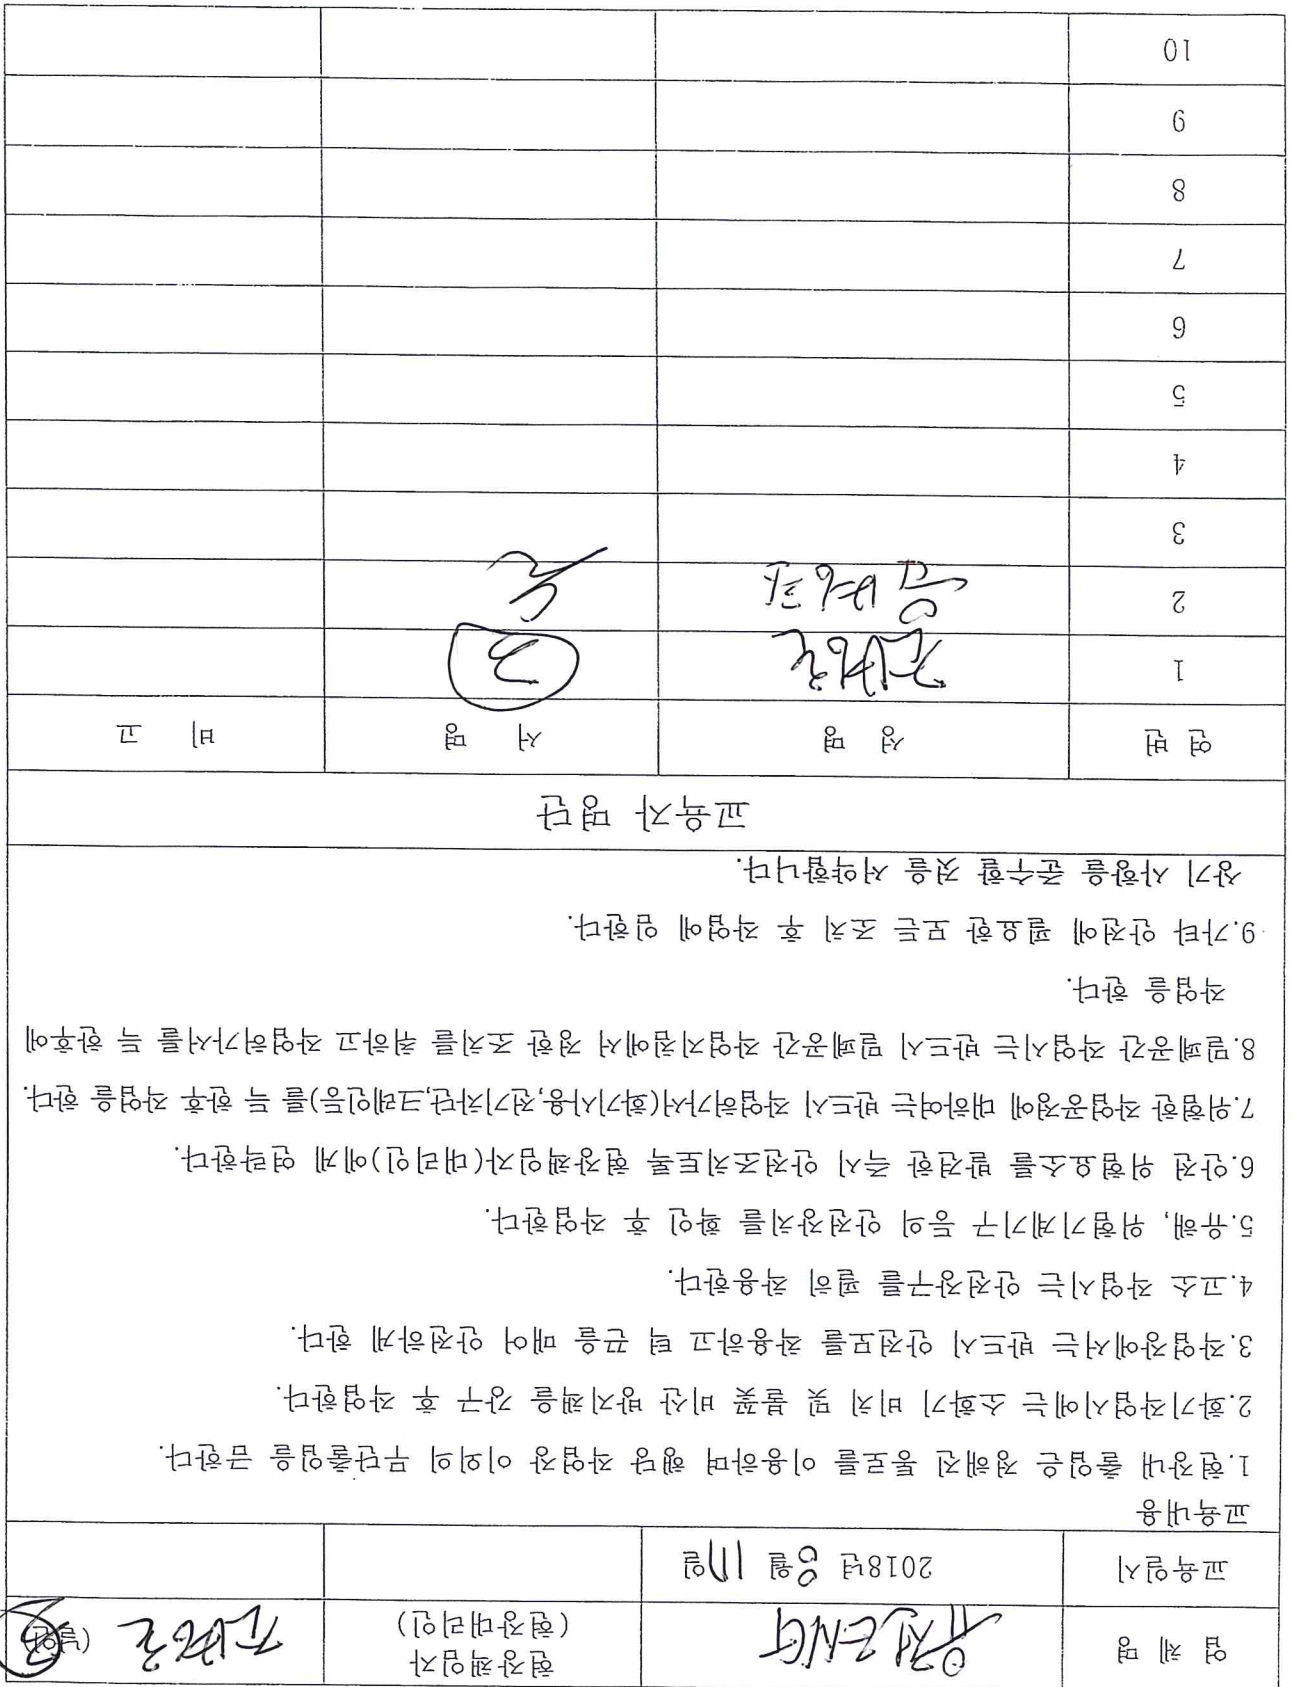 업 체 명
현장책임자
(현장대리인)
(날인)
교육일시 2018년 8월 17일
교육내용
1.현장내 출입은 정해진 통로를 이용하며 해당 작업장 이외의 무단출입을 금한다.
2.화기작업시에는 소화기 비치 및 불꽃 비산 방지책을 강구 후 작업한다.
3.작업장에서는 반드시 안전모를 착용하고 턱 끈을 매어 안전하게 한다.
4.고소 작업시는 안전장구를 필히 착용한다.
5.유해, 위험기계기구 등의 안전장치를 확인 후 작업한다.
6.안전 위험요소를 발견한 즉시 안전조치토록 현장책임자(대리인)에게 연락한다.
7.위험한 작업공정에 대하여는 반드시 작업허가서(화기사용,전기차단,크레인등)를 득 한후 작업을 한다.
8.밀폐공간 작업시는 반드시 밀폐공간 작업지침에서 정한 조치를 취하고 작업허가서를 득 한후에
작업을 한다.
9.기타 안전에 필요한 모든 조치 후 작업에 임한다.
상기 사항을 준수할 것을 서약합니다.
교육자 명단
연 번 성 명 서 명 비 고
1
2
3
4
5
6
7
8
9
10